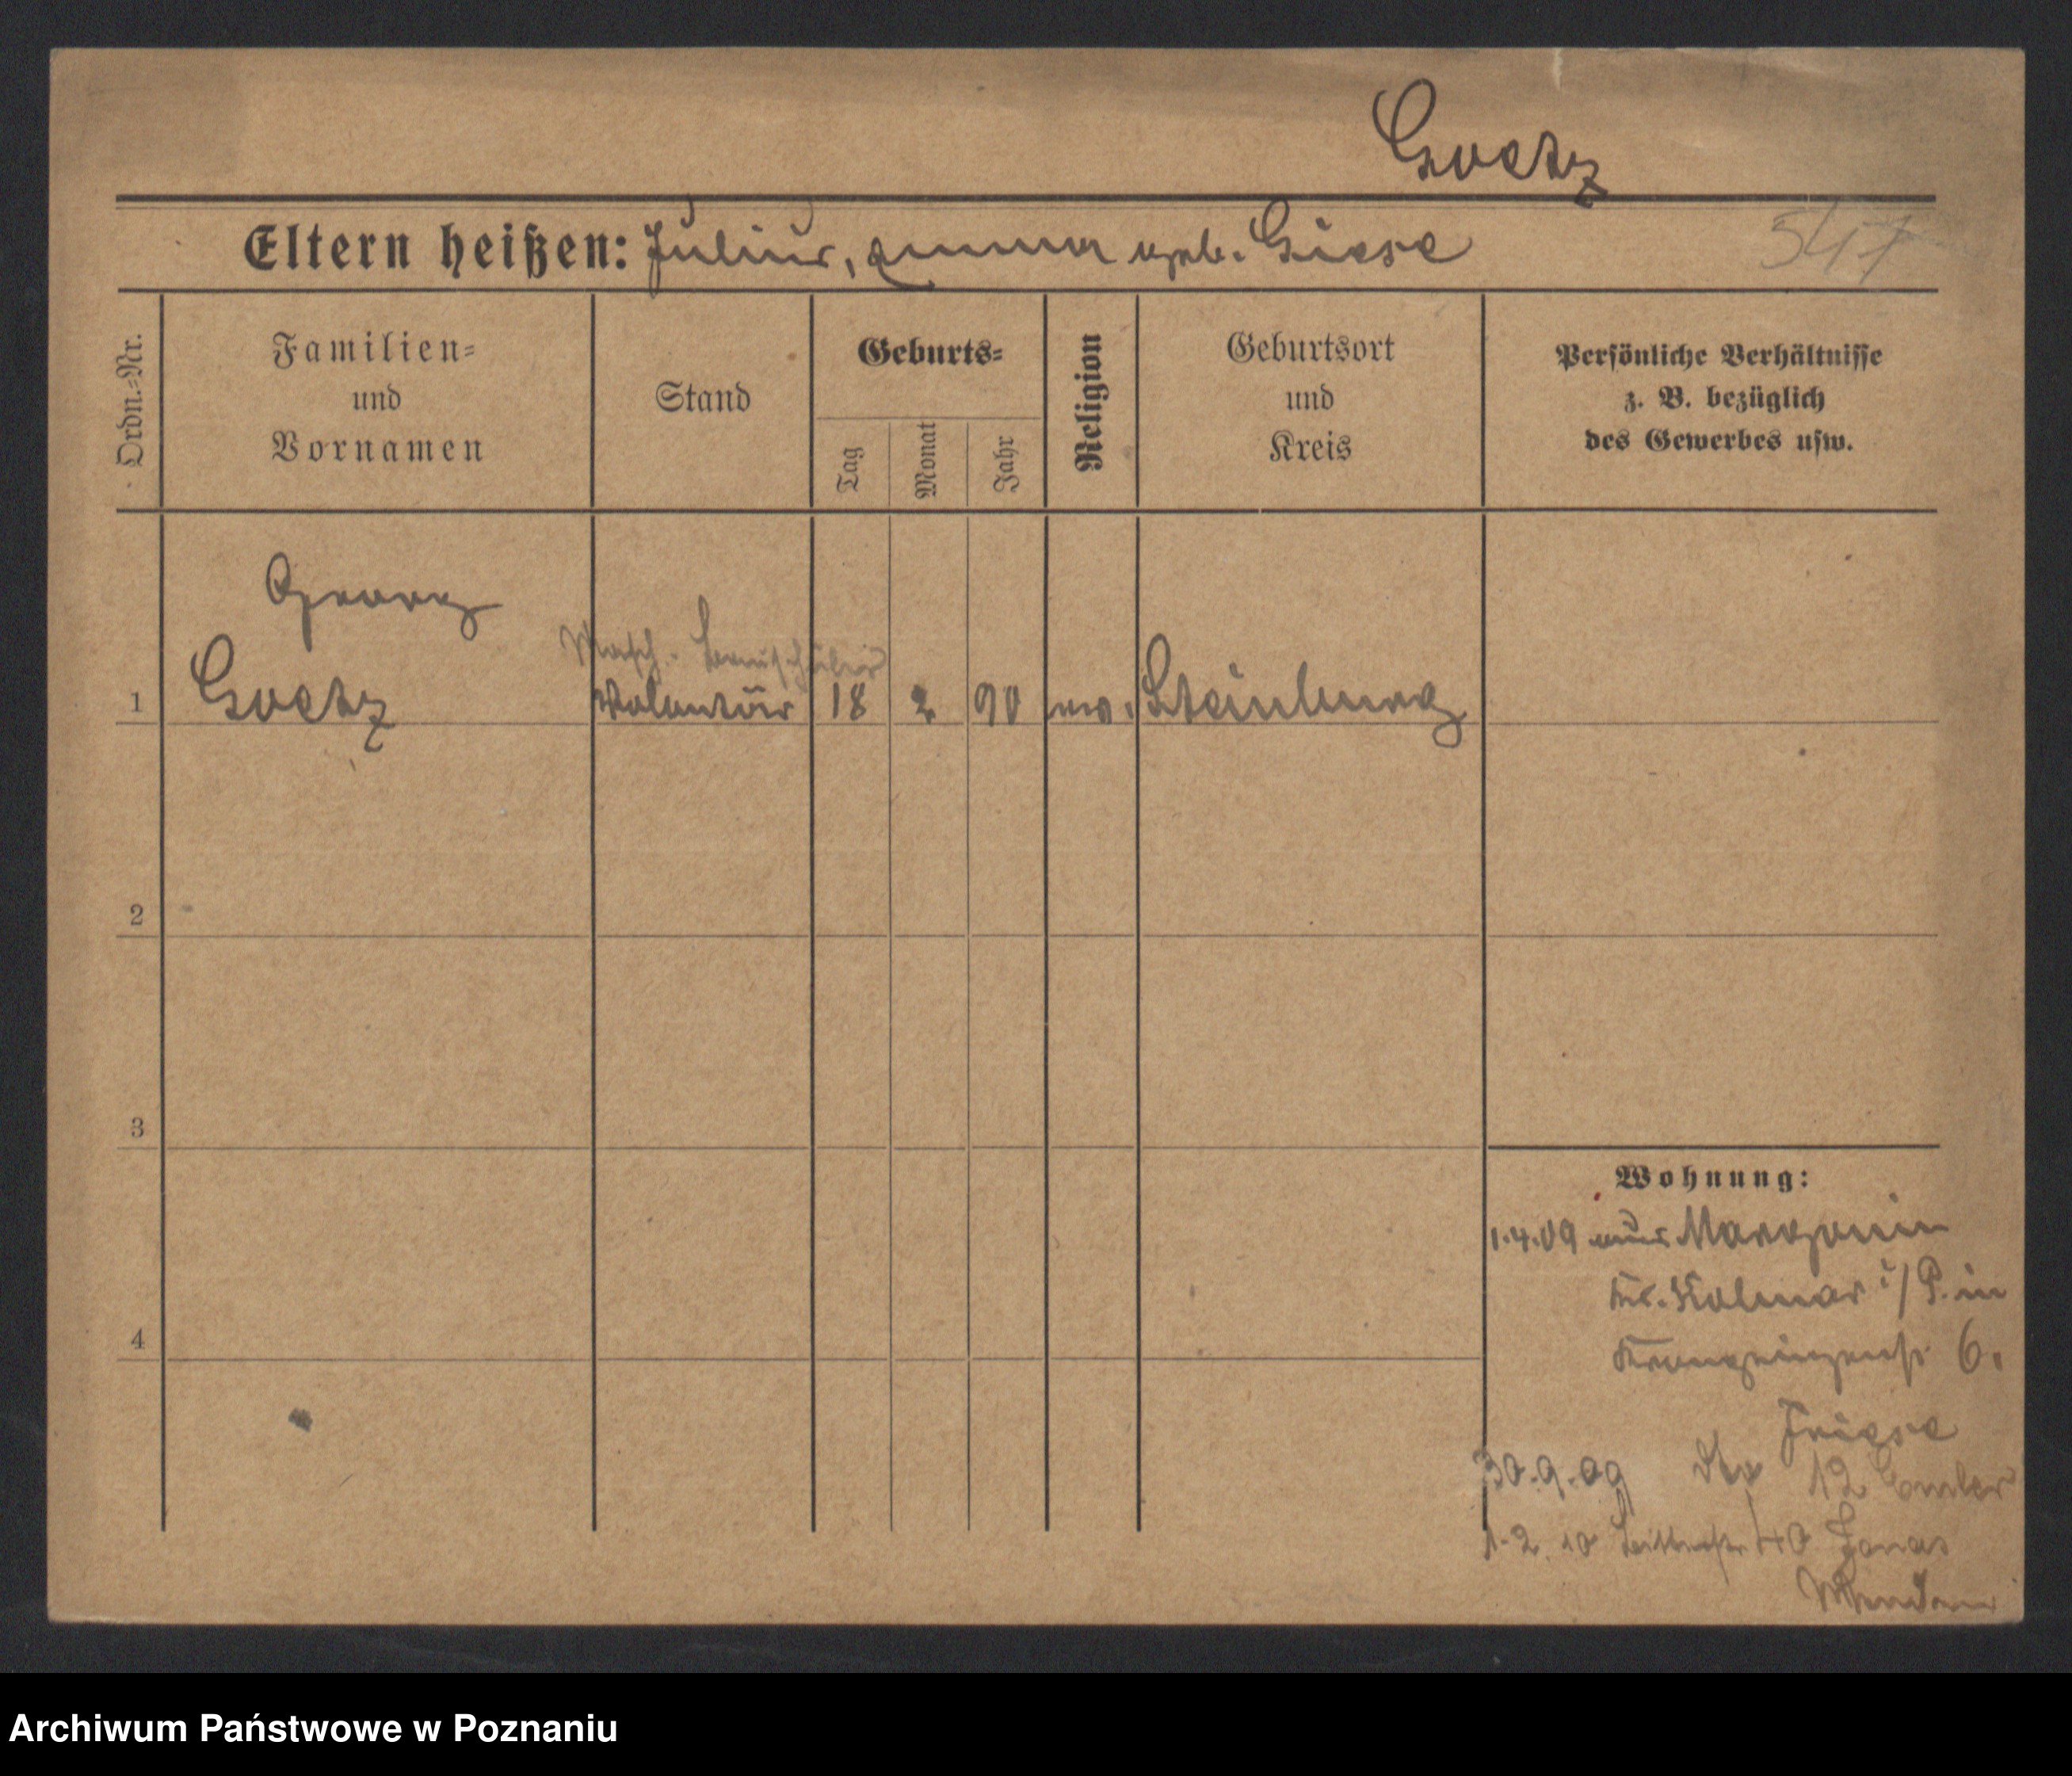 Goetz
Eltern heißen: Julius, Emma geb. Giese
547
Ordn.-Nr.
Familien-
und
Vornamen
Stand
Geburts-
Tag
Monat
Jahr
Religion
Geburtsort
und
Kreis
Persönliche Verhältnisse
z. B. bezüglich
des Gewerbes usw.
Georg
Masch. Bauschüler
1 Goetz Volontär 18 2 90 ev. Steinburg
2
3
4
Wohnung:
1.4.09 aus Margonin
Kr. Kolmar i/P. in
Kronprinzenstr 6.
Friese
30.9.09 12
1.2.10 40 Jonas
Archiwum Państwowe w Poznaniu